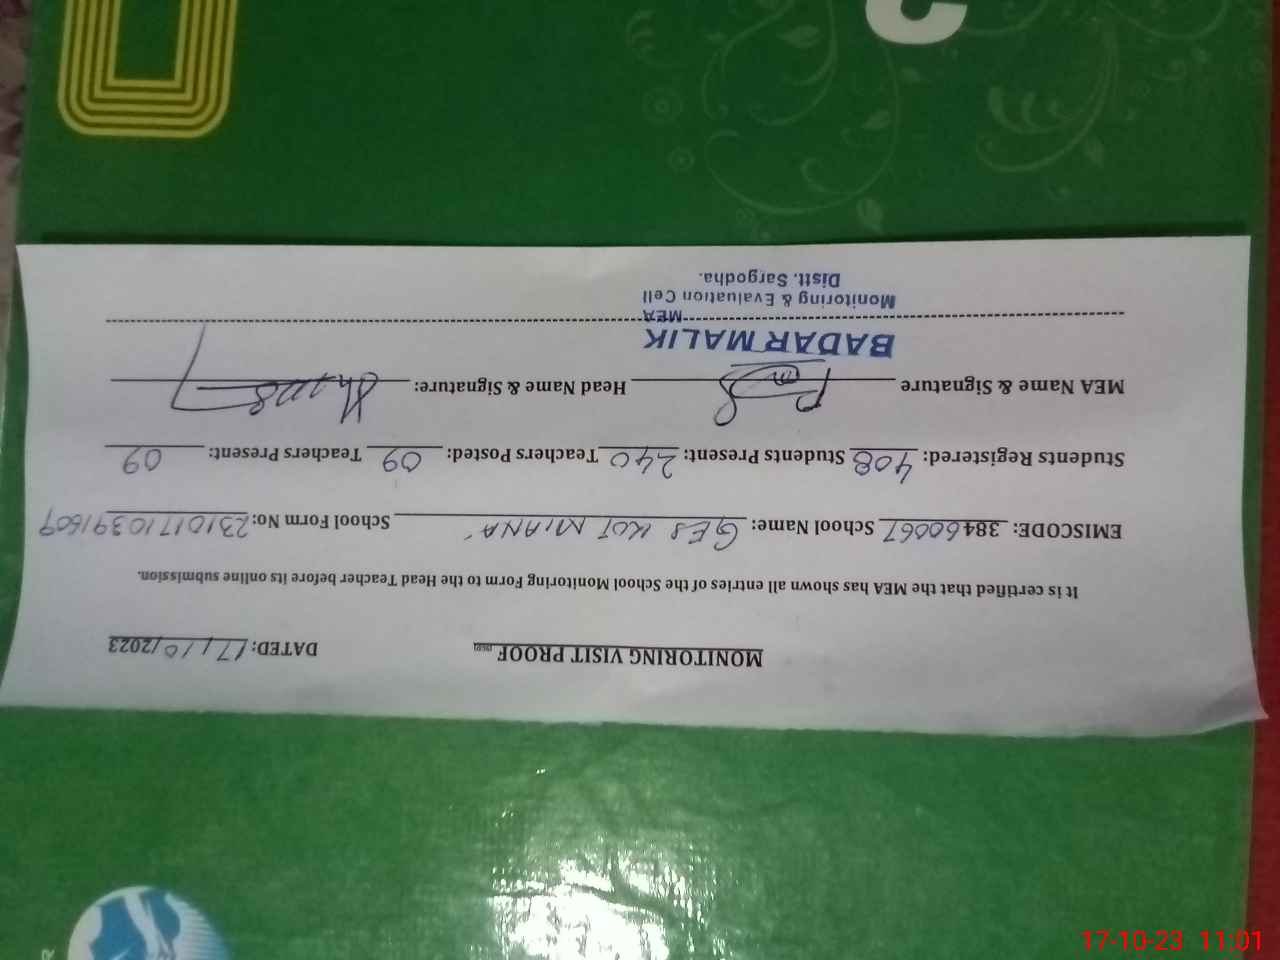 MONITORING VISIT PROOF
DATED: 17/10/2023
It is certified that the MEA has shown all entries of the School Monitoring Form to the Head Teacher before its online submission.
EMISCODE: 38460067 School Name: GES KOT MIANA School Form No: 23101710391609
Students Registered: 408 Students Present: 240 Teachers Posted: 09 Teachers Present: 09
MEA Name & Signature Head Name & Signature:
BADAR MALIK
MEA
Monitoring & Evaluation Cell
Distt. Sargodha.
17-10-23 11:01